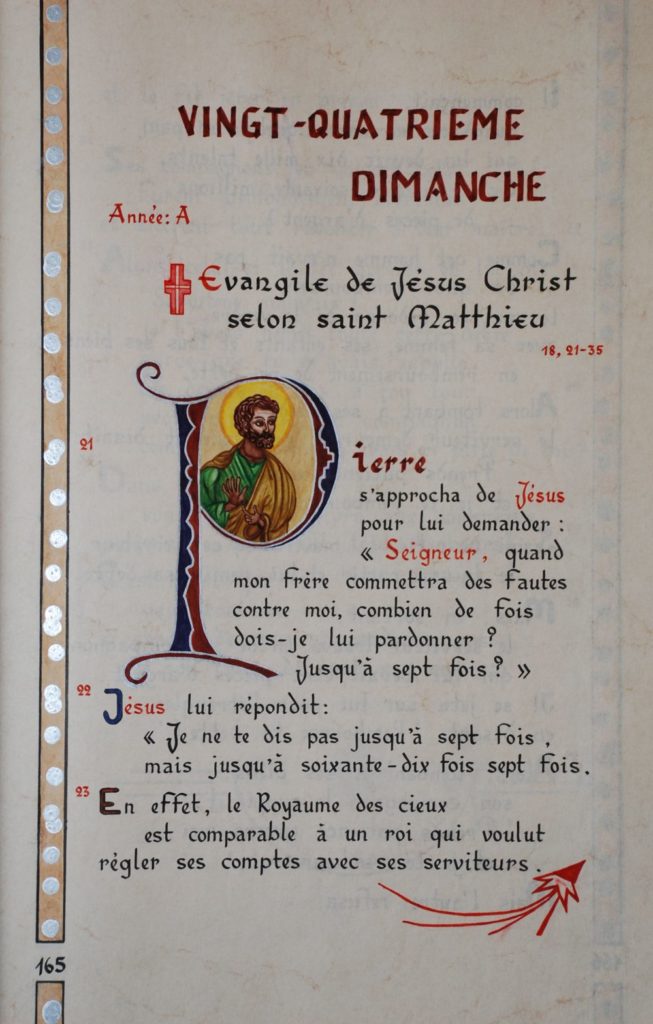 VINGT-QUATRIEME
DIMANCHE
Année: A
Evangile de Jésus Christ
selon saint Matthieu
18, 21-35
21
Pierre
s'approcha de Jésus
pour lui demander :
« Seigneur, quand
mon frère commettra des fautes
contre moi, combien de fois
dois-je lui pardonner ?
Jusqu'à sept fois ? »
22
Jésus lui répondit :
« Je ne te dis pas jusqu'à sept fois ,
mais jusqu'à soixante-dix fois sept fois .
23
En effet, le Royaume des cieux
est comparable à un roi qui voulut
régler ses comptes avec ses serviteurs .
165